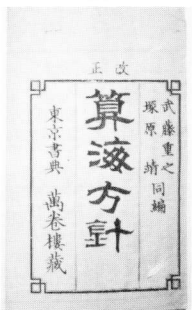 改正
武藤重之
塚原靖同編
算海方針
東京書典 萬卷樓藏